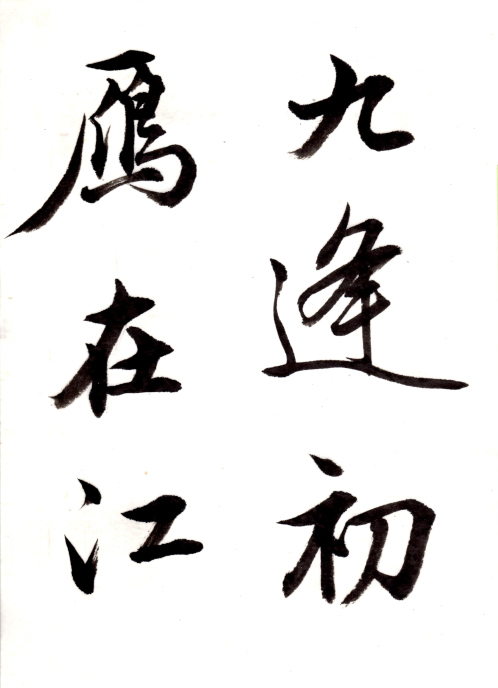 九逢初
鴈在江